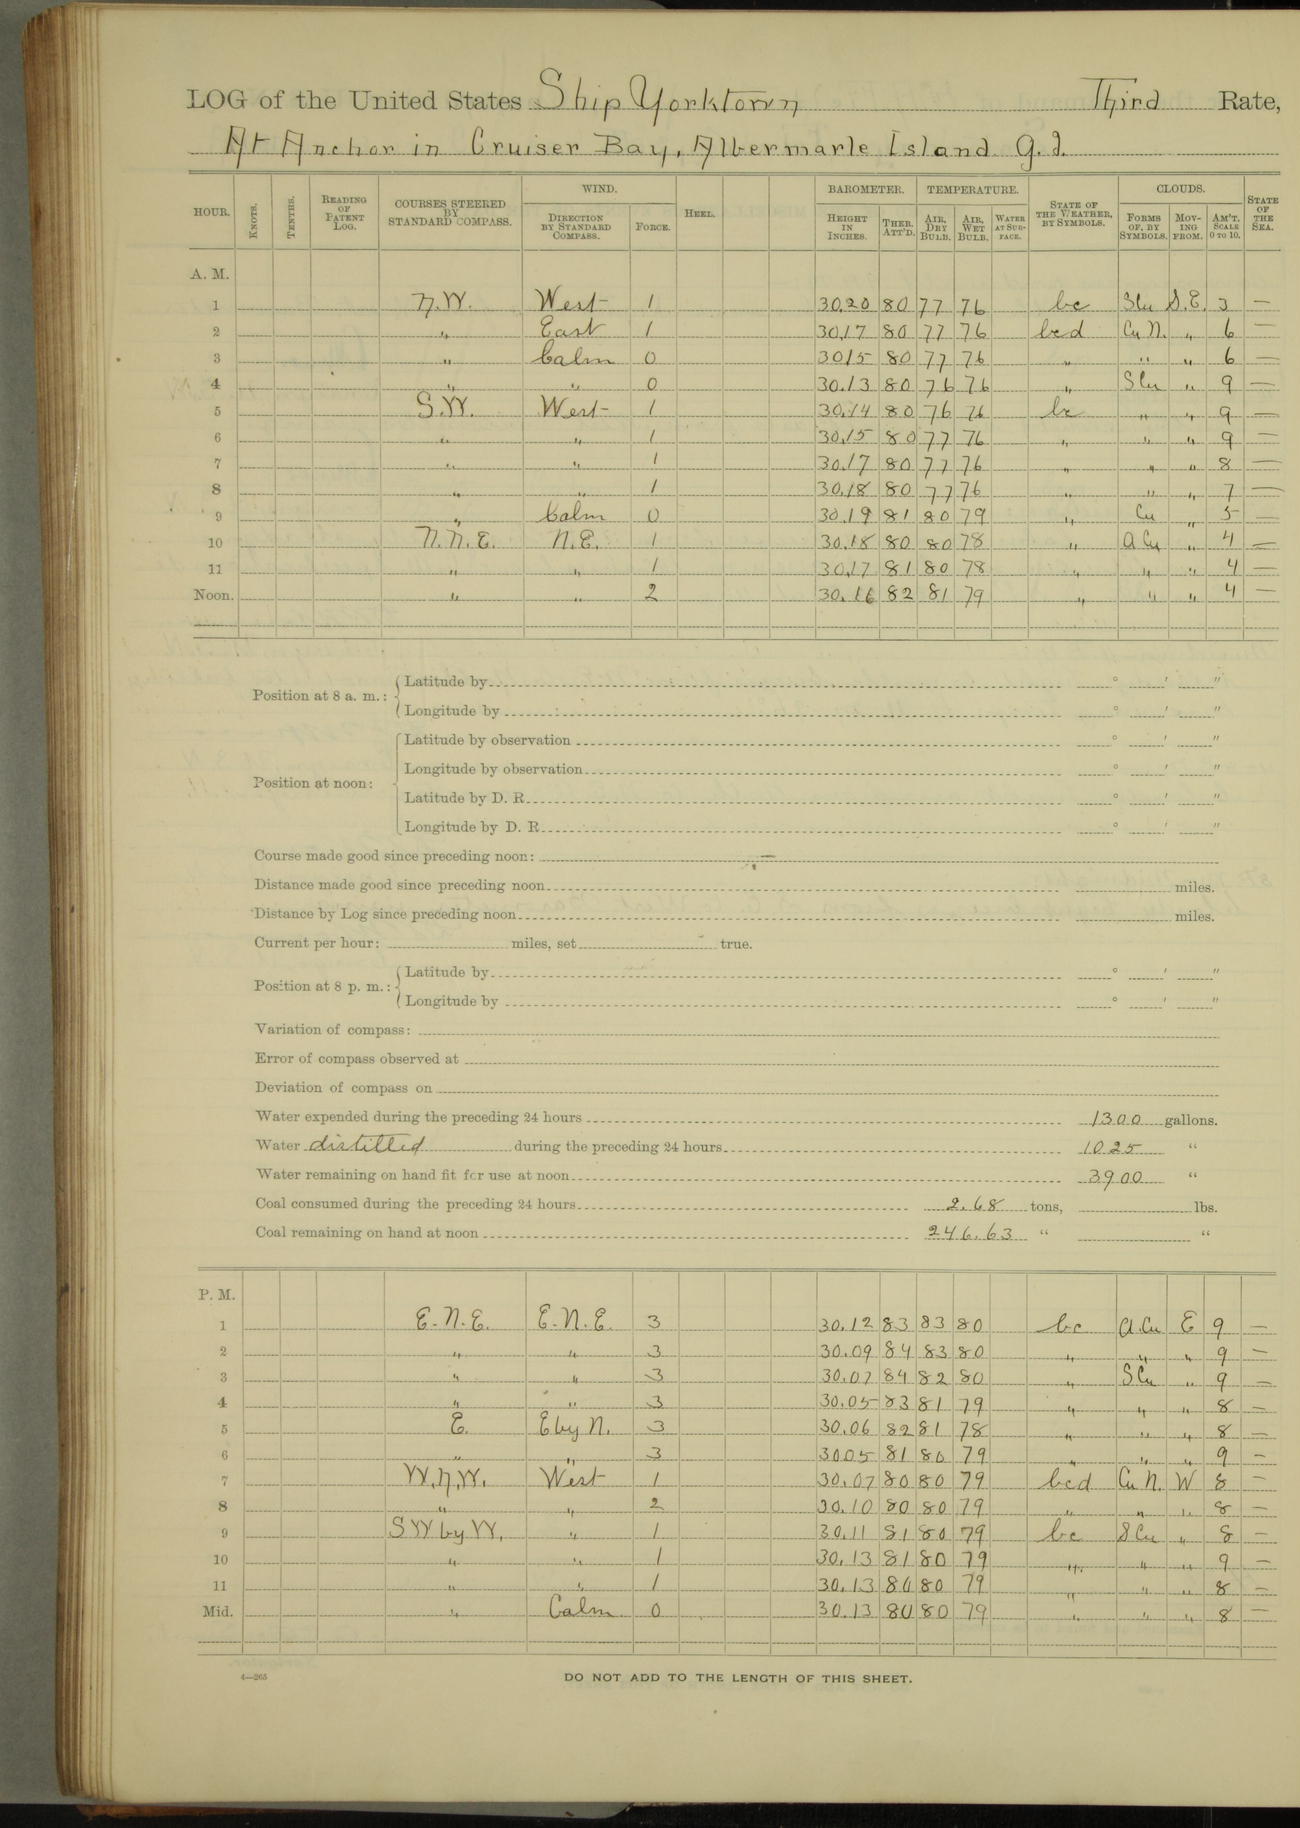 LOG of the United States Ship Yorktown Third Rate,
At Anchor in Cruiser Bay, Albermarle Island G.I.
HOUR. KNOTS. TENTHS. READING OF PATENT LOG. COURSES STEERED BY STANDARD COMPASS. WIND. DIRECTION BY STANDARD COMPASS. FORCE. HEEL. BAROMETER. HEIGHT IN INCHES. THER. ATT'D. TEMPERATURE. AIR, DRY BULB. AIR, WET BULB. WATER AT SURFACE. STATE OF THE WEATHER, BY SYMBOLS. CLOUDS. FORMS OF, BY SYMBOLS. MOVING FROM. AM'T. SCALE 0 TO 10. STATE OF THE SEA.
A. M.
1 N.W. West 1 30.20 80 77 76 bc Scu S.E. 3 —
2 " East 1 30.17 80 77 76 bcd Cu N. " 6 —
3 " Calm 0 3015 80 77 76 " " " 6 —
4 " " 0 30.13 80 76 76 " Scu " 9 —
5 S.W. West 1 30.14 80 76 76 bc " " 9 —
6 " " 1 30.15 80 77 76 " " " 9 —
7 " " 1 30.17 80 77 76 " " " 8 —
8 " " 1 30.18 80 77 76 " " " 7 —
9 " Calm 0 30.19 81 80 79 " Cu " 5 —
10 N.N.E. N.E. 1 30.18 80 80 78 " a Cu " 4 —
11 " " 1 30.17 81 80 78 " " " 4 —
Noon. " " 2 30.16 82 81 79 " " " 4 —
Position at 8 a. m.: Latitude by ° ′ ″
Longitude by ° ′ ″
Position at noon: Latitude by observation ° ′ ″
Longitude by observation ° ′ ″
Latitude by D. R. ° ′ ″
Longitude by D. R. ° ′ ″
Course made good since preceding noon: —
Distance made good since preceding noon miles.
Distance by Log since preceding noon miles.
Current per hour: miles, set true.
Position at 8 p. m.: Latitude by ° ′ ″
Longitude by ° ′ ″
Variation of compass:
Error of compass observed at
Deviation of compass on
Water expended during the preceding 24 hours 1300 gallons.
Water distilled during the preceding 24 hours 1025 "
Water remaining on hand fit for use at noon 3900 "
Coal consumed during the preceding 24 hours 2.68 tons, lbs.
Coal remaining on hand at noon 246.63 " "
P. M.
1 E.N.E. E.N.E. 3 30.12 83 83 80 bc a.Cu E 9 —
2 " " 3 30.09 84 83 80 " " " 9 —
3 " " 3 30.07 84 82 80 " SCu " 9 —
4 " " 3 30.05 83 81 79 " " " 8 —
5 E. E by N. 3 30.06 82 81 78 " " " 8 —
6 " " 3 3005 81 80 79 " " " 9 —
7 W.N.W. West 1 30.07 80 80 79 bcd Cu N. W 8 —
8 " " 2 30.10 80 80 79 " " " 8 —
9 SW by W. " 1 30.11 81 80 79 bc SCu " 8 —
10 " " 1 30.13 81 80 79 " " " 9 —
11 " " 1 30.13 80 80 79 " " " 8 —
Mid. " Calm 0 30.13 80 80 79 " " " 8 —
4—265
DO NOT ADD TO THE LENGTH OF THIS SHEET.